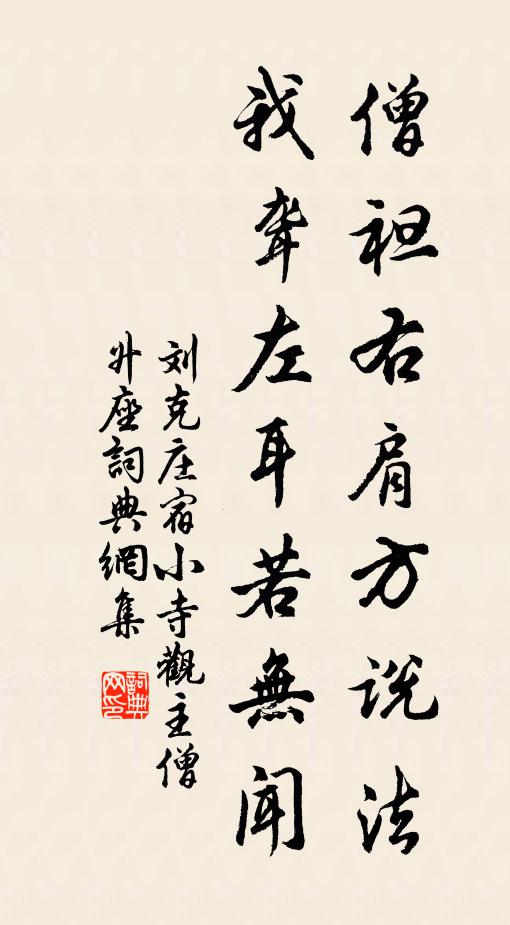 僧袒右肩方说法
我聋左耳若無闻
刘克庄宿小寺觀主僧
升座詞典網集
詞典
网印